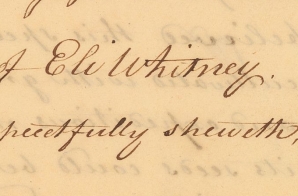 of Eli Whitney.
pectfully sheweth,